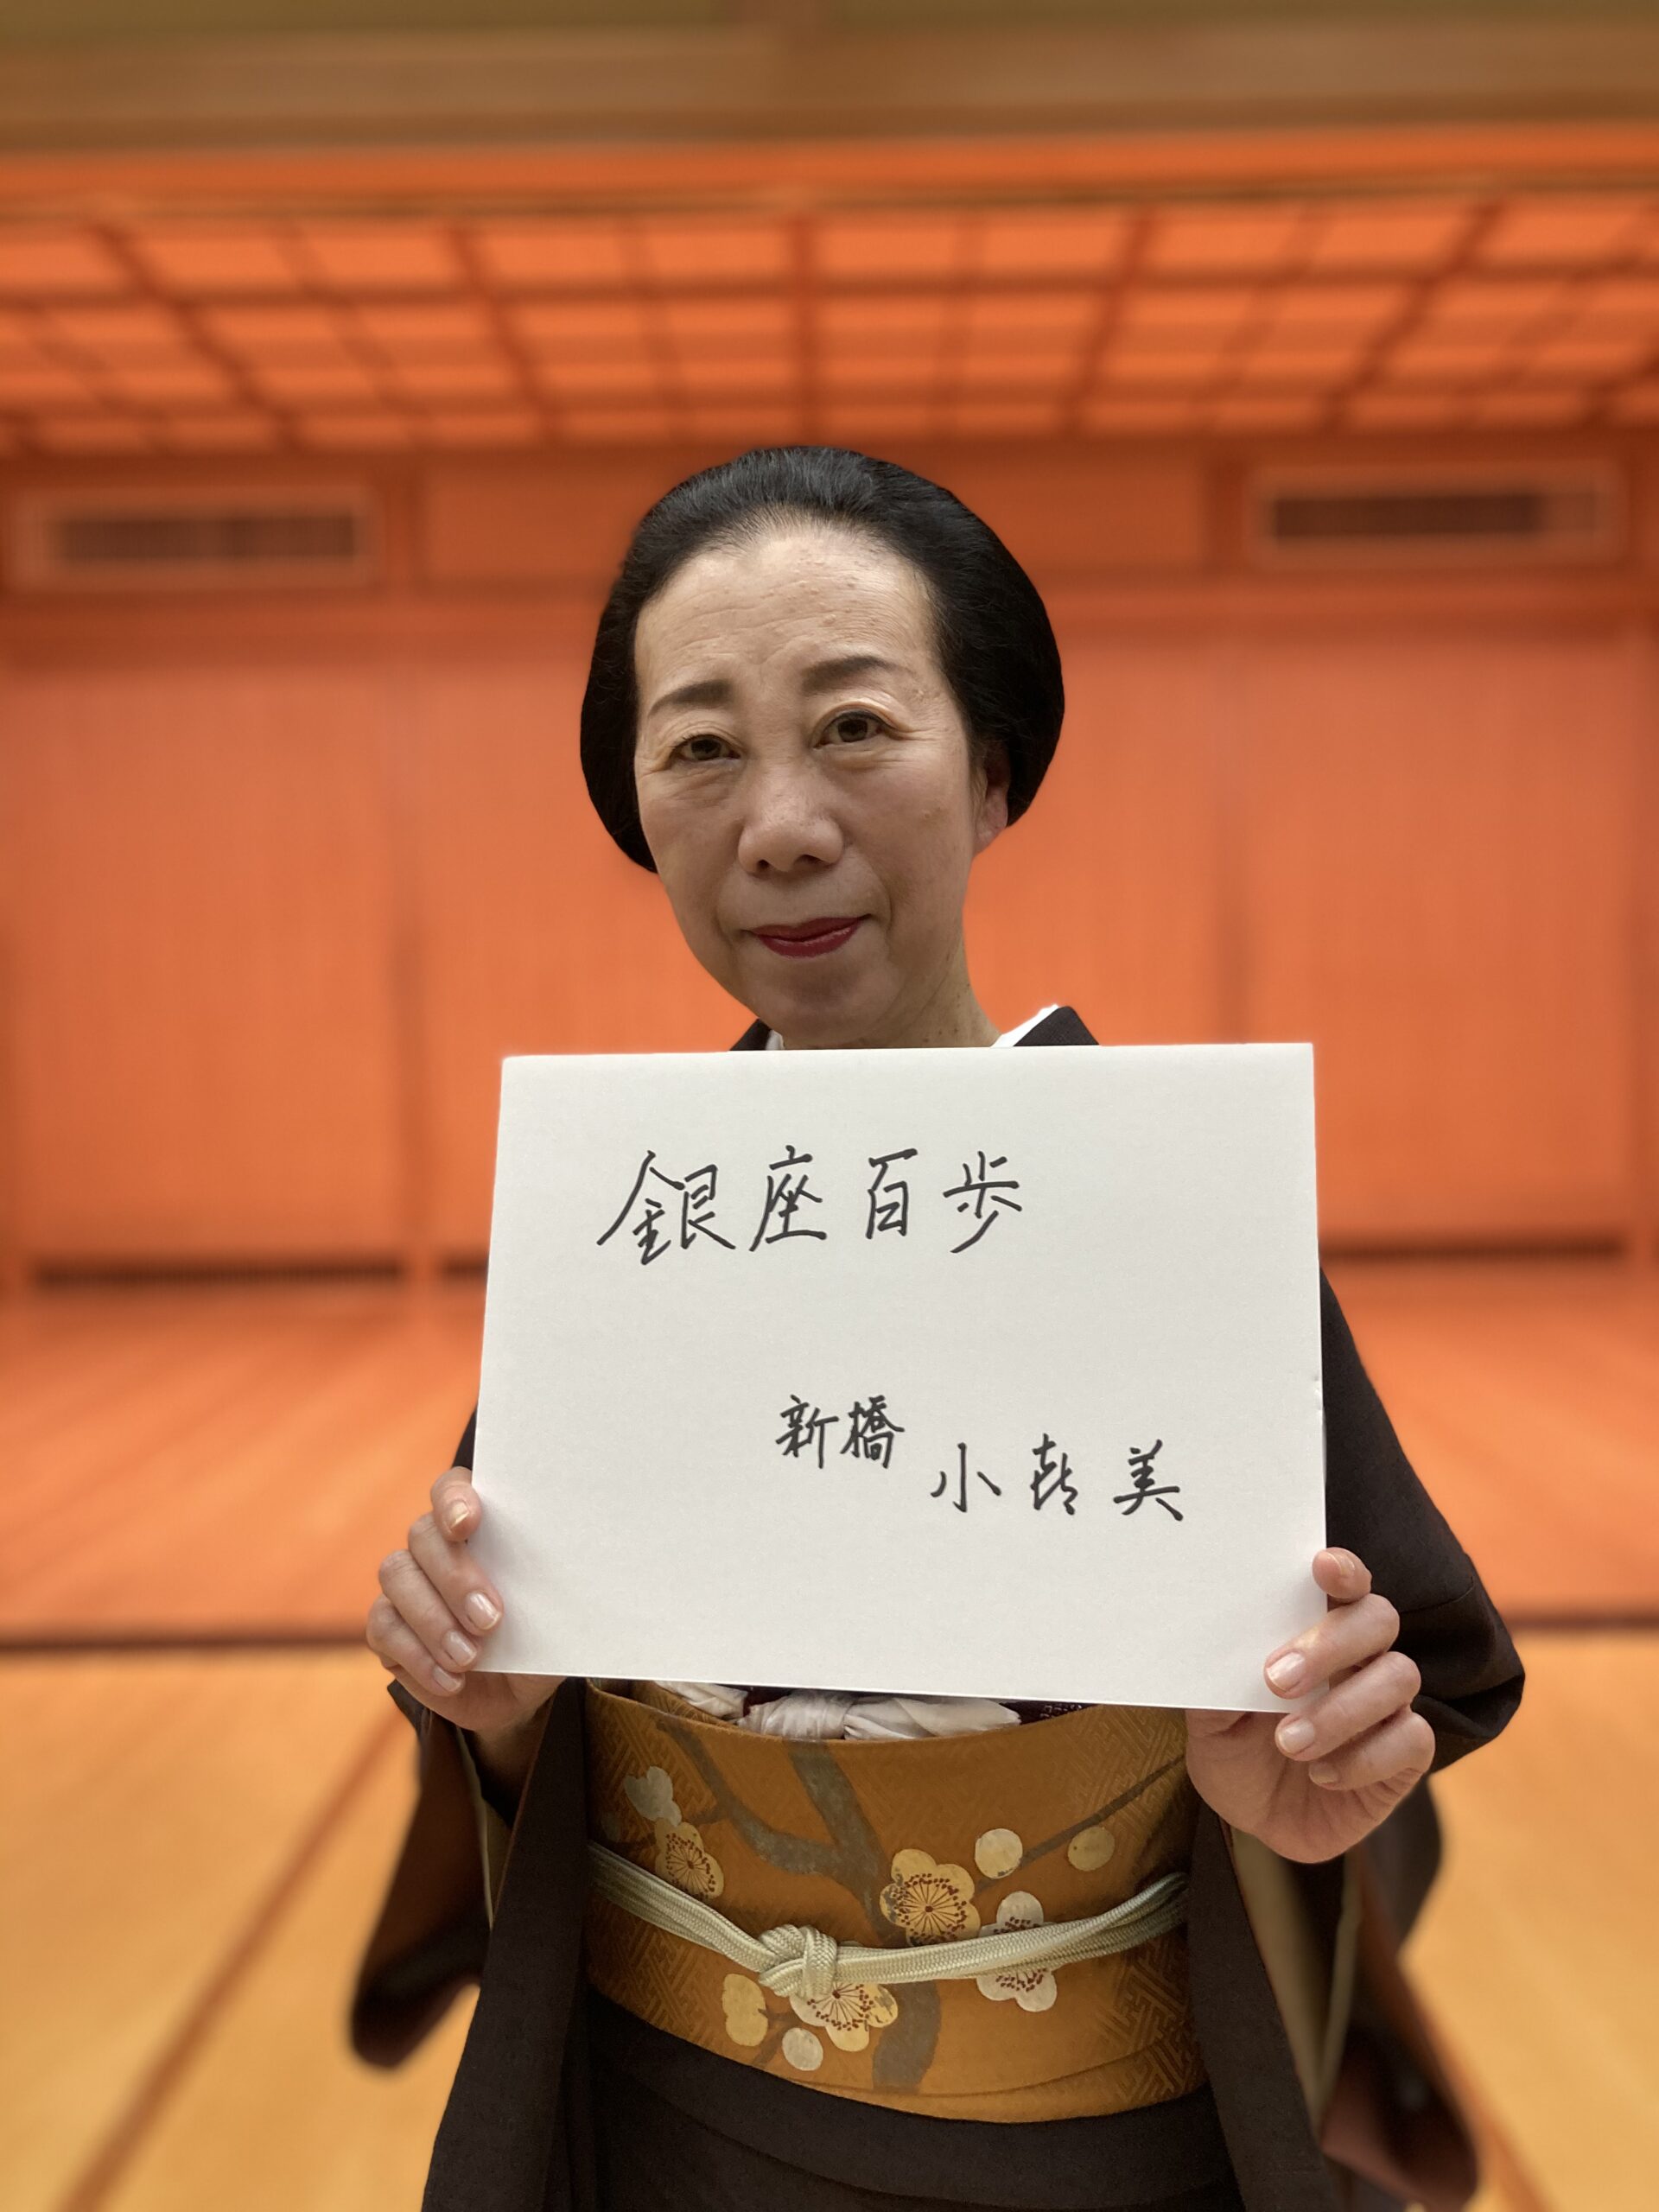 銀座百歩
新橋 小喜美